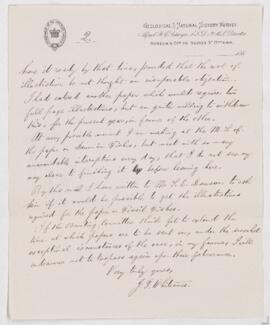 GEOLOGICAL & NATURAL HISTORY SURVEY
Alfred R. C. Selwyn, L.L.D., F.R.S. Director
MUSEUM & OFFICE, SUSSEX ST. OTTAWA.
2
188
have it ready by that time, provided that the cost of
illustration be not thought an insuperable objection.
I had asked another paper which would require two
full page illustrations, but am quite willing to withdraw
this for the present in favour of the other.
It is very possible I am working at the
the paper on Fishes, but meet with so many
unavoidable interruptions every day that I do not see any
chance to finishing it before leaving here.
By this mail I have written to Mr. Dawson to ask
him if it would be possible to get the illustrations
required for the paper on Fossil Fishes.
If the Printing Committee think fit to extend the
time at which papers are to be sent in, under the
exceptional circumstances of the case, in my favour, I will
endeavour not to trespass again upon their forbearance.
Very truly yours,
J. F. Whiteaves